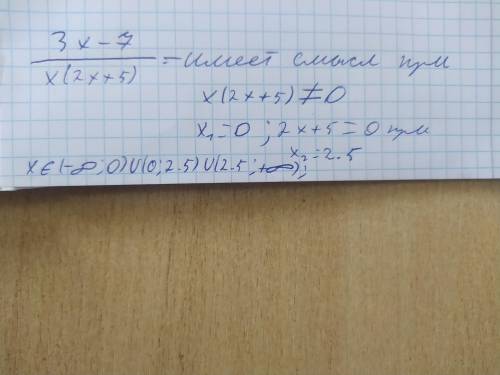 3x-7
x(2x+5)
- имеет смысл при
x(2x+5)≠0
x₁=0 ; 2x+5=0 при
x₂=2.5
x∈(-∞;0)∪(0;2.5)∪(2.5;+∞);